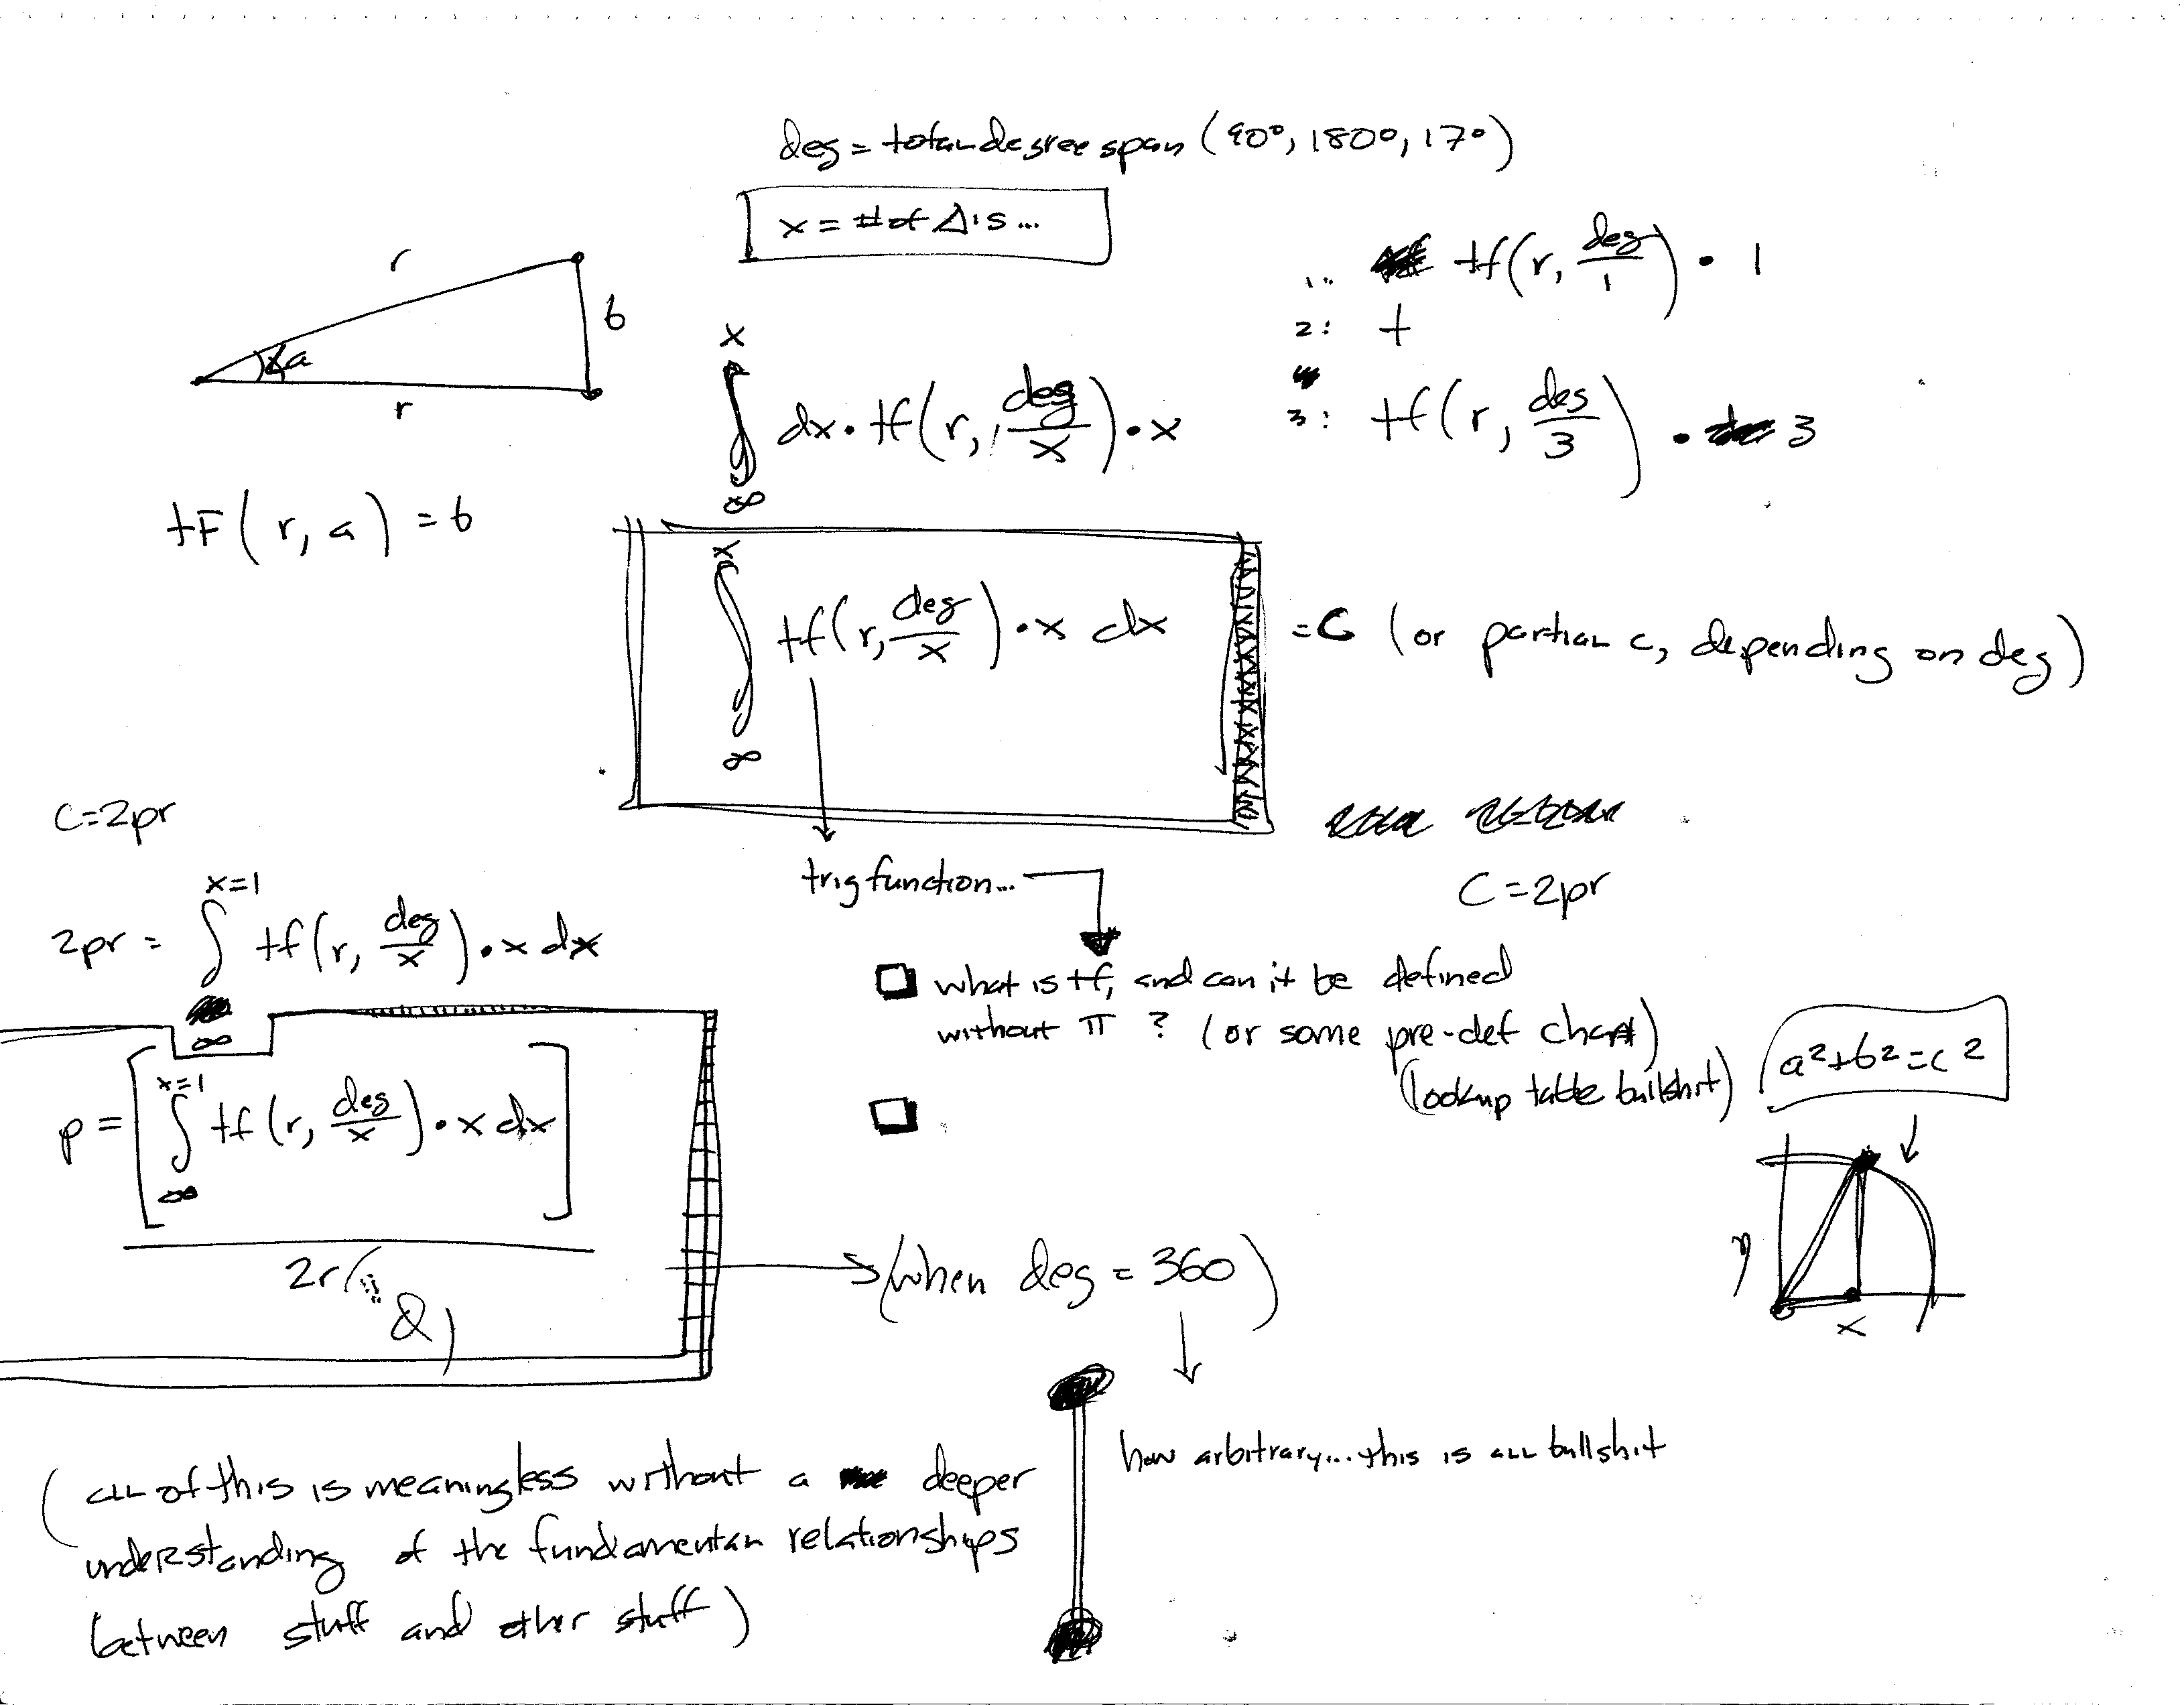 deg = total degree span (90°, 180°, 17°)
x = # of Δ's ...
r
b
∡a
r
tF(r, a) = b
1.. tf(r, deg/1) • 1
2: t
3: tf(r, deg/3) • 3
x
∫ dx • tf(r, deg/x) • x
∞
x
∫ tf(r, deg/x) • x dx = C (or partial c, depending on deg)
∞
trig function...
C = 2pr
C=2pr
x=1
2pr = ∫ tf(r, deg/x) • x dx
∞
x=1
p = [∫ tf(r, deg/x) • x dx]
∞
2r
□ what is tf, and can it be defined
without π ? (or some pre-def chart)
(lookup table bullshit)
□
a²+b²=c²
y
x
(when deg = 360)
how arbitrary... this is all bullshit
(all of this is meaningless without a deeper
understanding of the fundamental relationships
between stuff and other stuff)